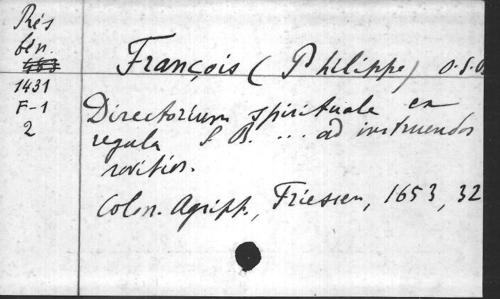 Rés
bén.
1431
F-1
2
François (Philippe) O.S.
Directorium spirituale ex
regula S B. ... ad instruendos
novitios.
Colon. Agripp., Friessen, 1653, 32